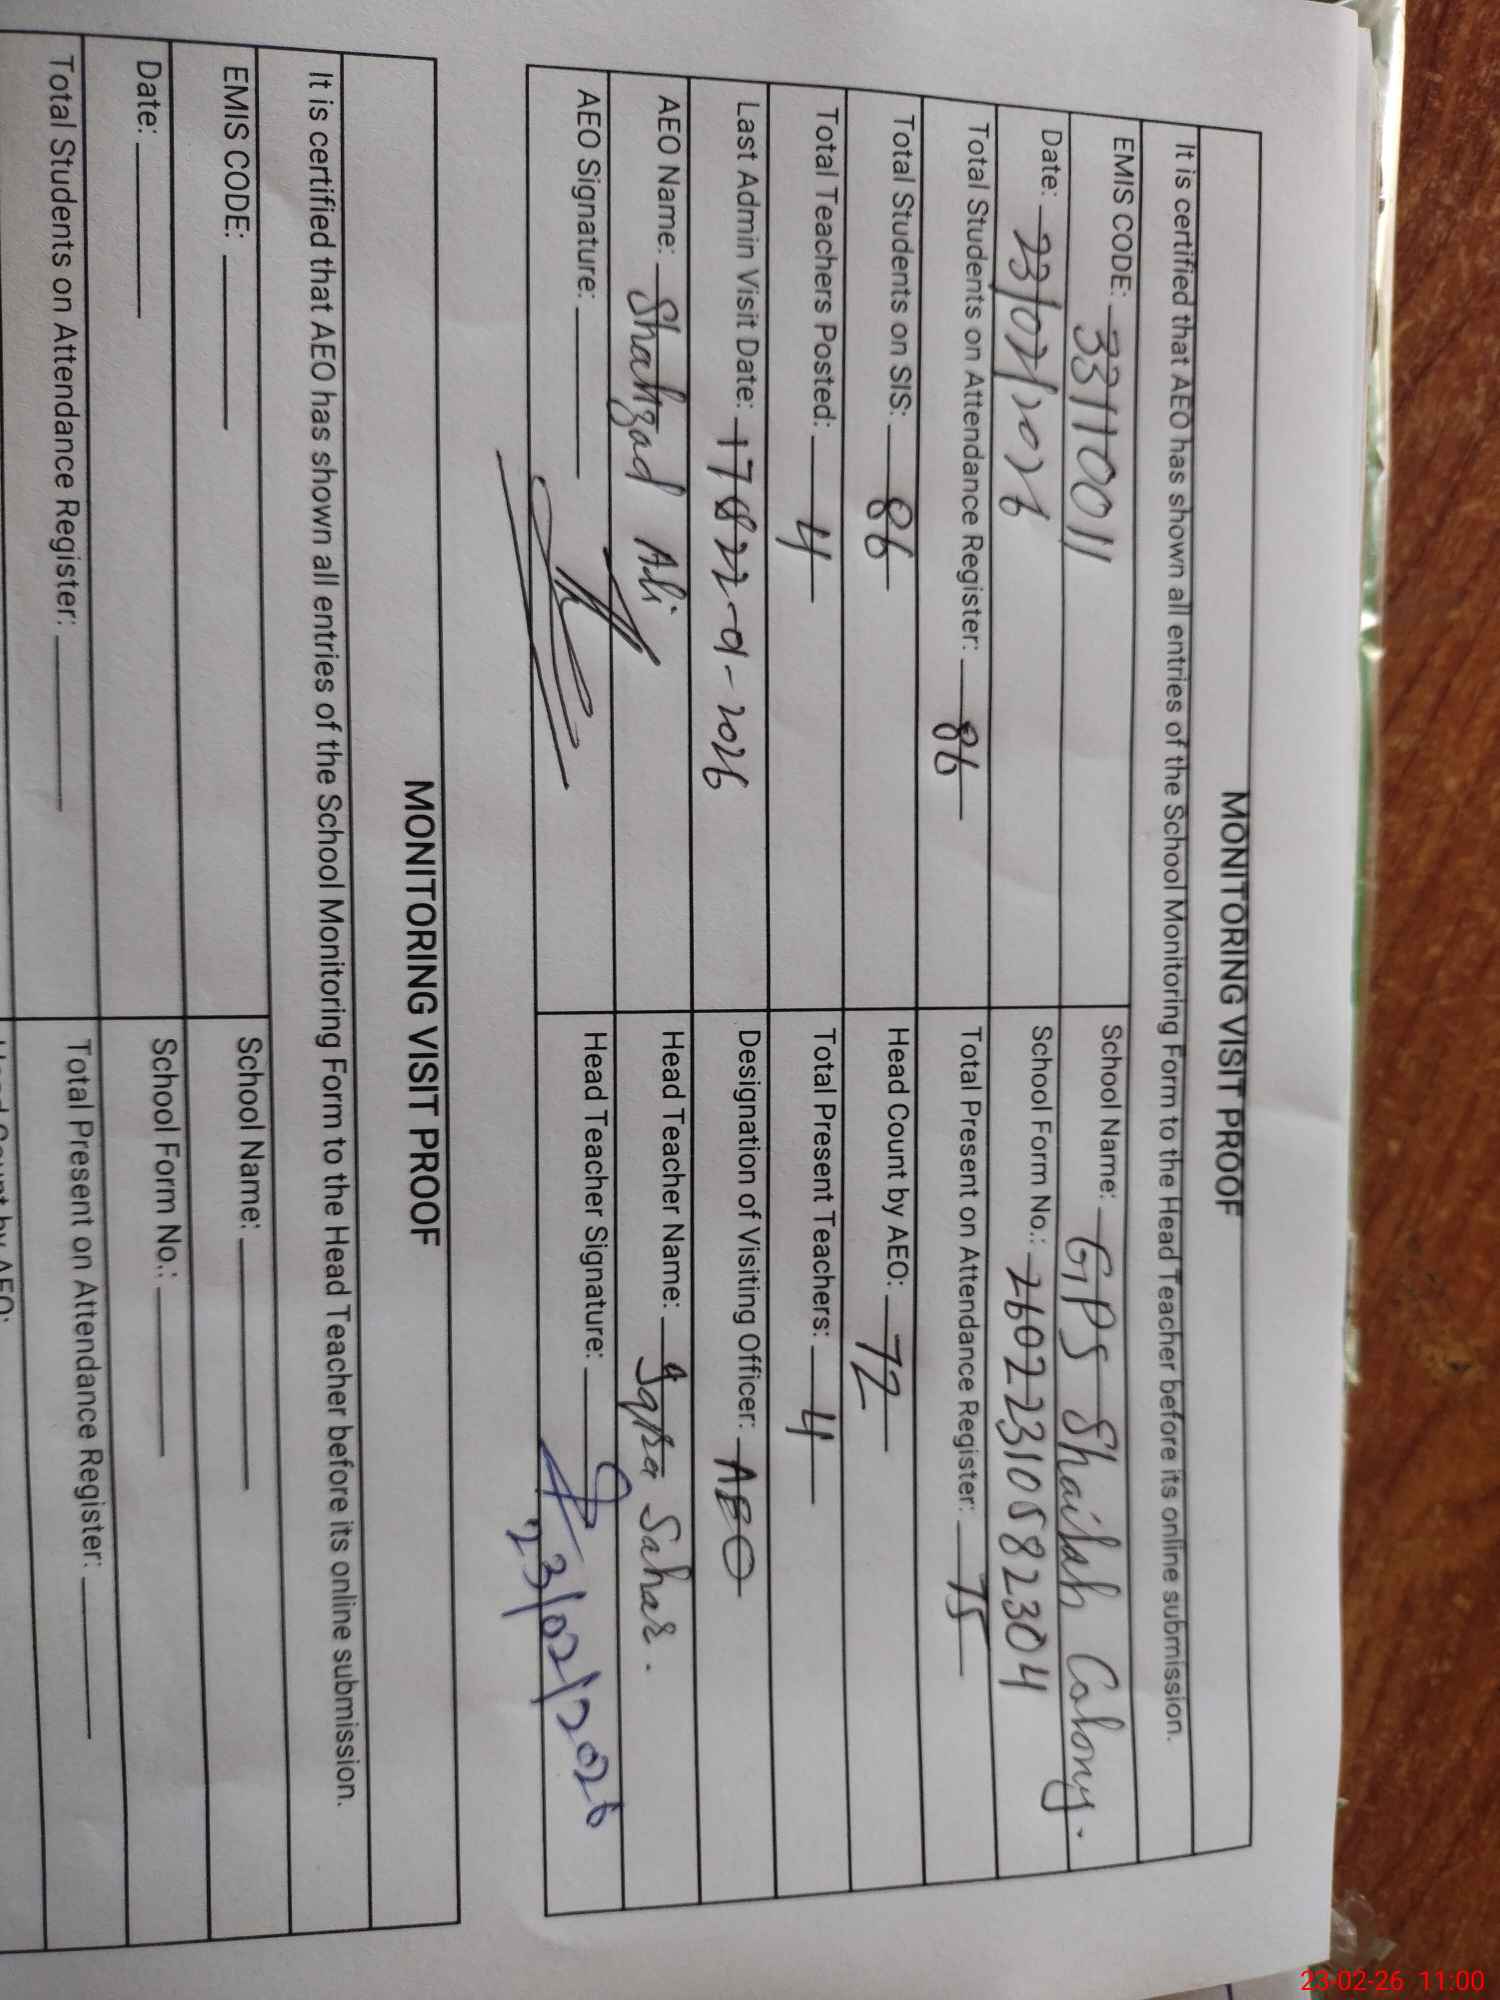 MONITORING VISIT PROOF
It is certified that AEO has shown all entries of the School Monitoring Form to the Head Teacher before its online submission.
EMIS CODE: 33110011 School Name: GPS Shailah Colony.
Date: 23/02/2026 School Form No.: 26022310582304
Total Students on Attendance Register: 86 Total Present on Attendance Register: 75
Total Students on SIS: 86 Head Count by AEO: 72
Total Teachers Posted: 4 Total Present Teachers: 4
Last Admin Visit Date: 22-01-2026 Designation of Visiting Officer: AEO
AEO Name: Shahzad Ali Head Teacher Name: Iqra Sahar.
AEO Signature: Head Teacher Signature: 23/02/2026
MONITORING VISIT PROOF
It is certified that AEO has shown all entries of the School Monitoring Form to the Head Teacher before its online submission.
EMIS CODE: School Name:
Date: School Form No.:
Total Students on Attendance Register: Total Present on Attendance Register:
23-02-26 11:00